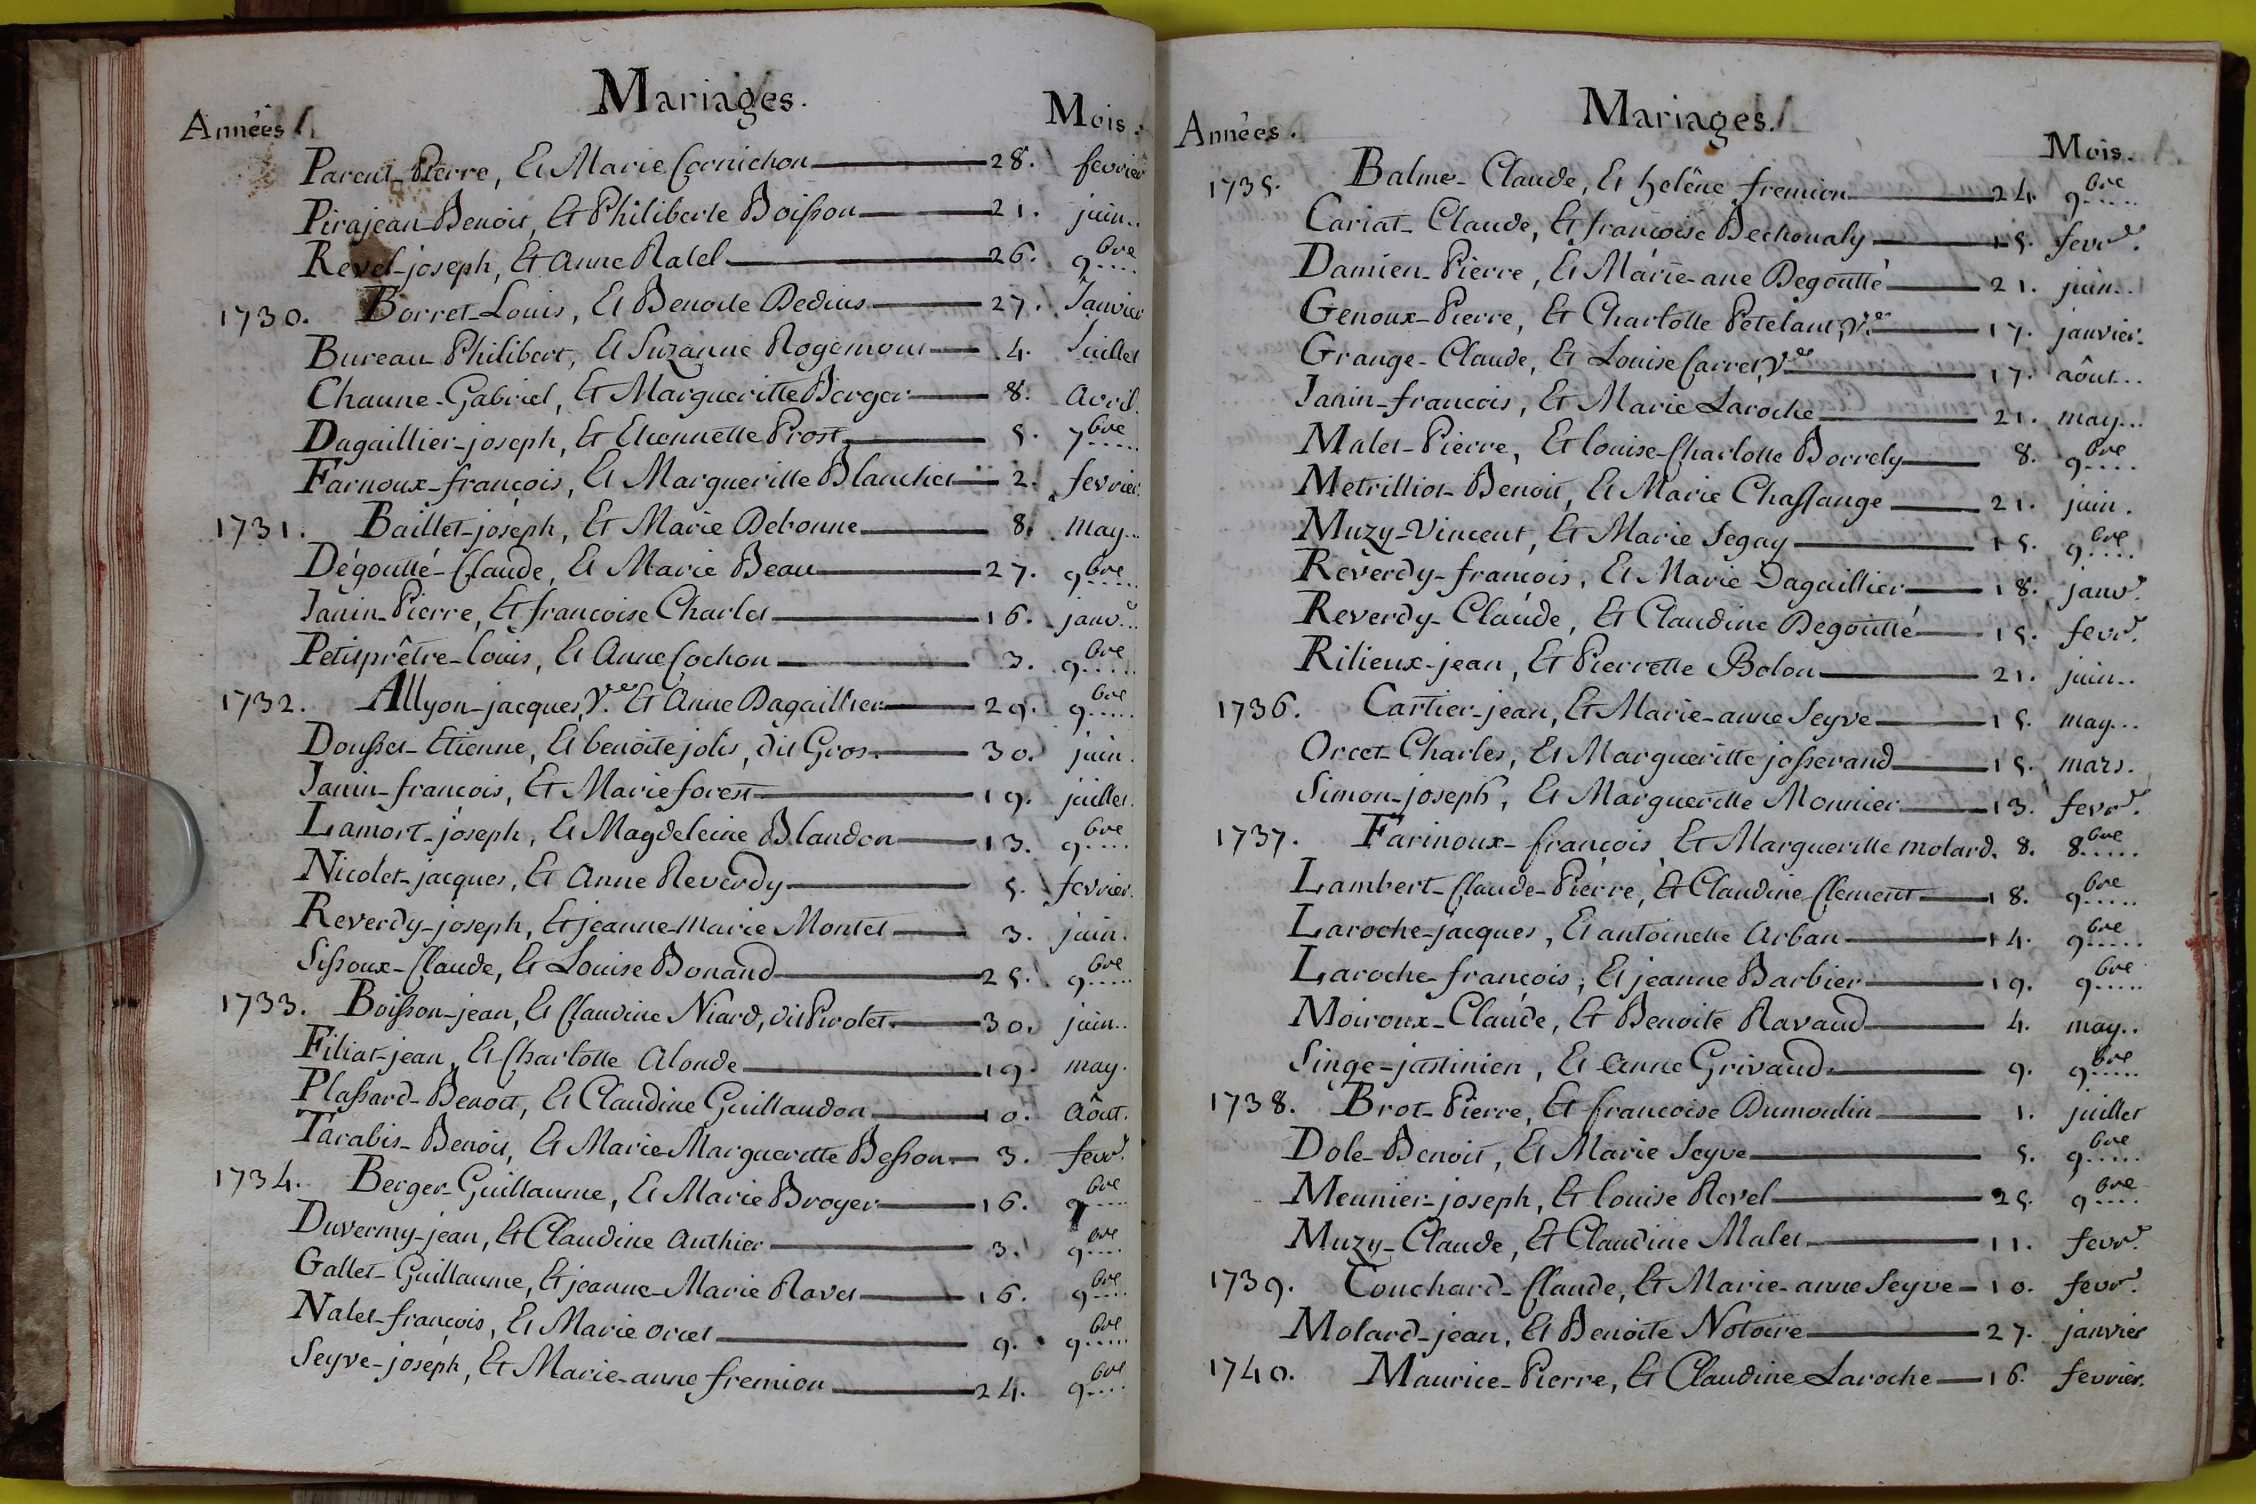 Mariages.
Années Mois.
Parent-Pierre, Et Marie Cornichon 28. fevrier
Pirajean-Benoit, Et Philiberte Boisson 21. juin..
Revel-joseph, Et Anne Ratel 26. 9bre
1730. Borret-Louis, Et Benoite Dedius 27. Janvier
Bureau-Philibert, Et Suzanne Rogemont 4. Juillet
Chaune-Gabriel, Et Margueritte Berger 8. Avril.
Dagaillier-joseph, Et Etiennette Prost 5. 7bre
Farnoux-françois, Et Margueritte Blanchet 2. fevrier.
1731. Baillet-joseph, Et Marie Debonne 8. may...
Dégoutté-Claude, Et Marie Beau 27. 9bre
Janin-Pierre, Et francoise Charlet 16. janvr..
Petitprêtre-Louis, Et Anne Cochon 3. 9bre
1732. Allyon-jacques, Ve. Et Anne Dagaillier 29. 9bre
Dousset-Etienne, Et benoite jolis, dit Gros. 30. juin.
Janin-francois, Et Marie forest 19. juillet.
Lamort-joseph, Et Magdeleine Blandon 13. 9bre
Nicolet-jacques, Et Anne Reverdy 5. fevrier.
Reverdy-joseph, Et jeanne-Marie Montet 3. juin.
Sissoux-Claude, Et Louise Bonand 25. 9bre
1733. Boisson-jean, Et Claudine Niard, dit Pirolet. 30. juin..
Filiat-jean, Et Charlotte Alonde 19. may.
Plassard-Benoit, Et Claudine Guillaudon 10. Aôut.
Tarabis-Benois, Et Marie-Margueritte Besson. 3. fevr.
1734. Berger-Guillaume, Et Marie Broyer 16. 9bre
Duvermy-jean, Et Claudine Authier 3. 9bre
Gallet-Guillaume, Et jeanne-Marie Ravet 16. 9bre
Nalet-françois, Et Marie Orcet 9. 9bre
Seyve-joseph, Et Marie-anne fremion 24. 9bre
Mariages.
Années. Mois.
1735. Balme-Claude, Et helêne fremion 24 9bre
Cariat-Claude, Et francoise Dechonaly 15. fevr.
Damien-Pierre, Et Marie-ane Degoutté 21. juin..
Genoux-Pierre, Et Charlotte Petelant, Ve. 17. janvier.
Grange-Claude, Et Louise Carret, Ve 17. aôut..
Janin-francois, Et Marie Laroche 21. may...
Malet-Pierre, Et louise-Charlotte Borrely 8. 9bre
Metrilliot-Benoit, Et Marie Chassange 21. juin.
Muzy-Vincent, Et Marie Segay 15. 9bre
Reverdy-francois, Et Marie Dagaillier 18. janvr.
Reverdy-Claude, Et Claudine Degoutté 15. fevr.
Rilieux-jean, Et Pierrette Bolon 21. juin..
1736. Cartier-jean, Et Marie-anne Seyve 15. may...
Orcet-Charles, Et Margueritte josserand 15. mars.
Simon-joseph, Et Margueritte Monnier 13. fevr.
1737. Farinoux-françois, Et Margueritte molard. 8. 8bre
Lambert-Claude-Pierre, Et Claudine Clement 18. 9bre
Laroche-jacques, Et antoinette Arban 14. 9bre
Laroche-françois, Et jeanne Barbier 19. 9bre
Moiroux-Claude, Et Benoite Ravaud 4. may..
Singe-jastinien, Et Anne Grivaud. 9. 9bre
1738. Brot-Pierre, Et francoise Dumoulin 1. juillet
Dole-Benoit, Et Marie Seyve 5. 9bre
Meunier-joseph, Et louise Revel 25. 9bre
Muzy-Claude, Et Claudine Malet 11. fevr.
1739. Couchard-Claude, Et Marie-anne Seyve 10. fevr.
Molard-jean, Et Benoite Notoire 27. janvier
1740. Maurice-Pierre, Et Claudine Laroche 16. fevrier.